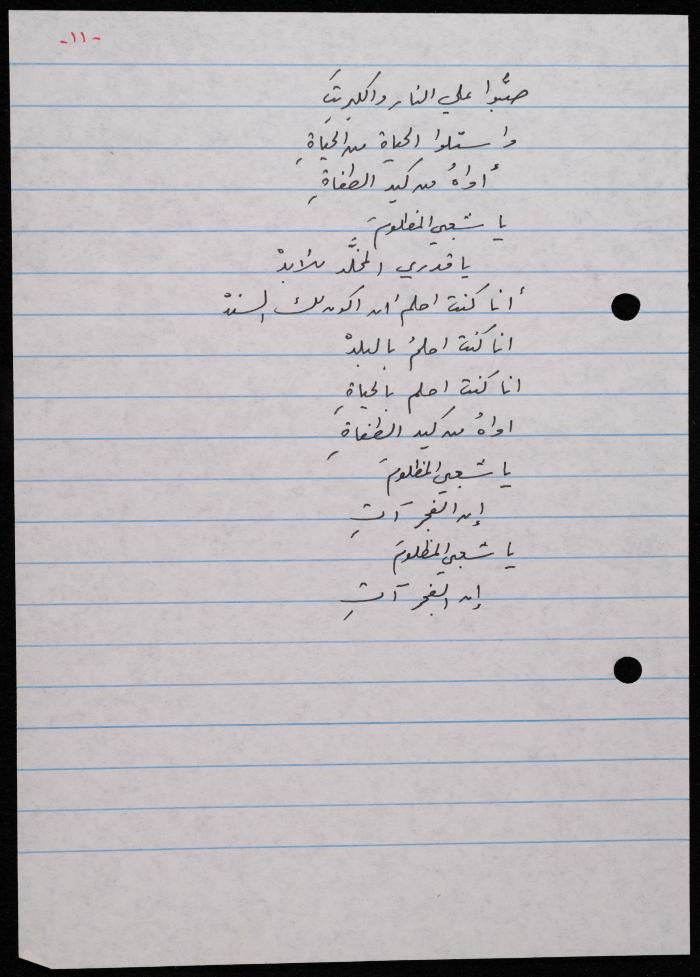 -١١-
صبُّوا علي النار والكبريتَ
واستلوا الحياة من الحياةِ
أواهُ من كيد الطغاةِ
يا شعبي المظلومَ
يا قدري المخلَّد للأبدْ
أنا كنت احلمُ ان اكون لك السندْ
انا كنت احلمُ بالبلدْ
انا كنت احلم بالحياةِ
اواهُ من كيد الطغاةِ
يا شعبي المظلومَ
إن الفجر آتِ
يا شعبي المظلومَ
إن الفجر آتِ